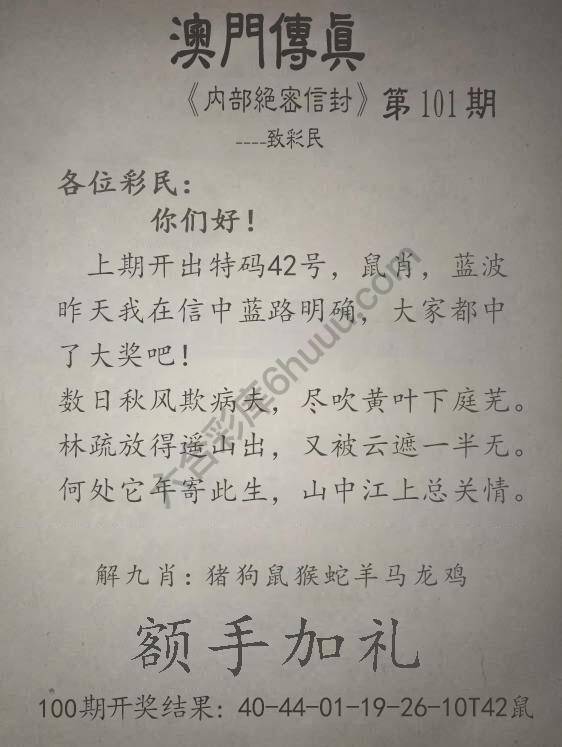 澳門傳眞
《内部絕密信封》第101期
----致彩民
各位彩民：
你们好！
上期开出特码42号，鼠肖，蓝波
昨天我在信中蓝路明确，大家都中
了大奖吧！
数日秋风欺病夫，尽吹黄叶下庭芜。
林疏放得遥山出，又被云遮一半无。
何处它年寄此生，山中江上总关情。
六合彩库6huuu.com
解九肖：猪狗鼠猴蛇羊马龙鸡
额手加礼
100期开奖结果：40-44-01-19-26-10T42鼠